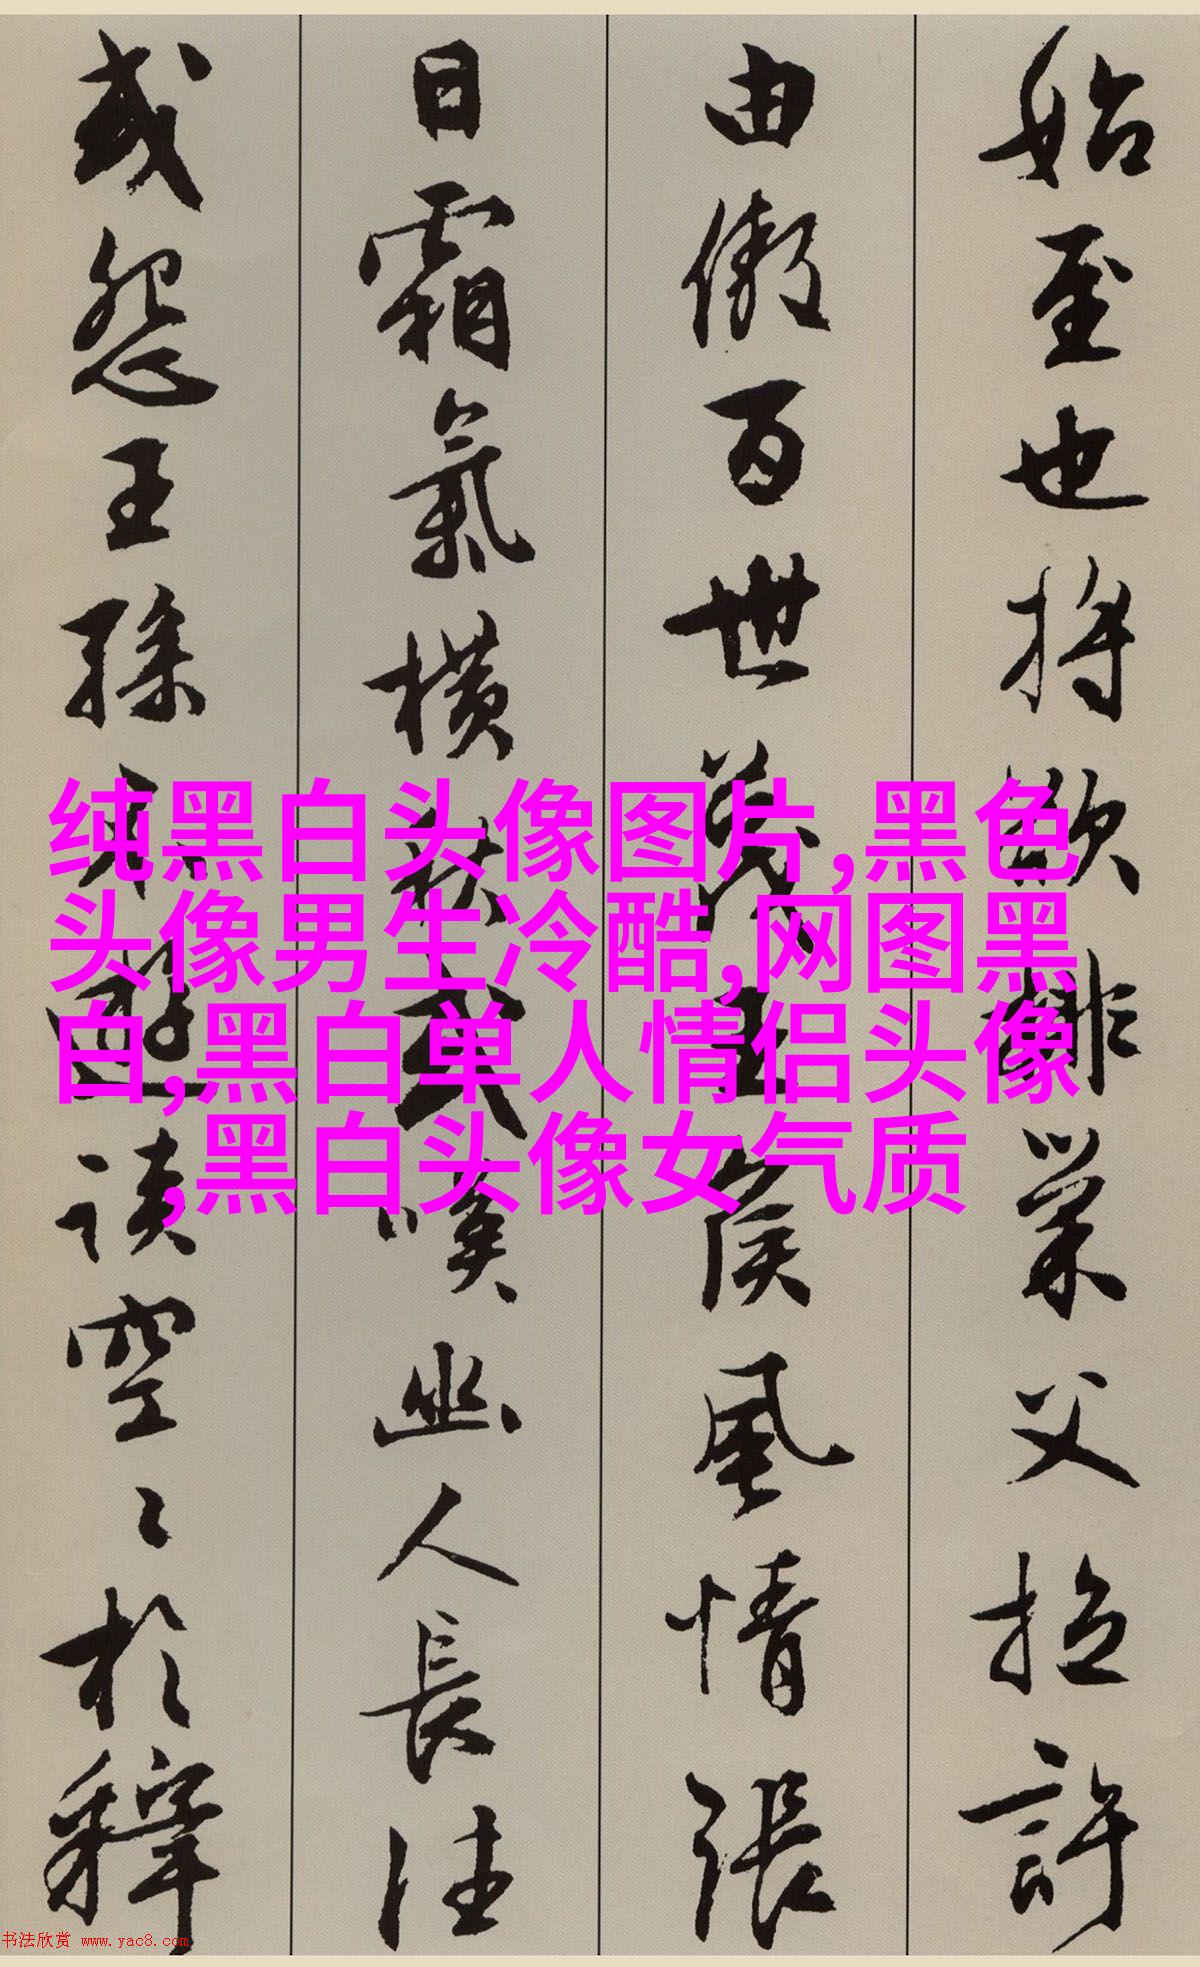 始至也将欲排巢父拉許
由傲百世蔑王侯風情張
日霜氣橫秋或嘆幽人長往
或怨王孫不遊談空〻於釋
纯黑白头像图片,黑色
头像男生冷酷,网图黑
白,黑白单人情侣头像
,黑白头像女气质
书法欣赏 www.yac8.com